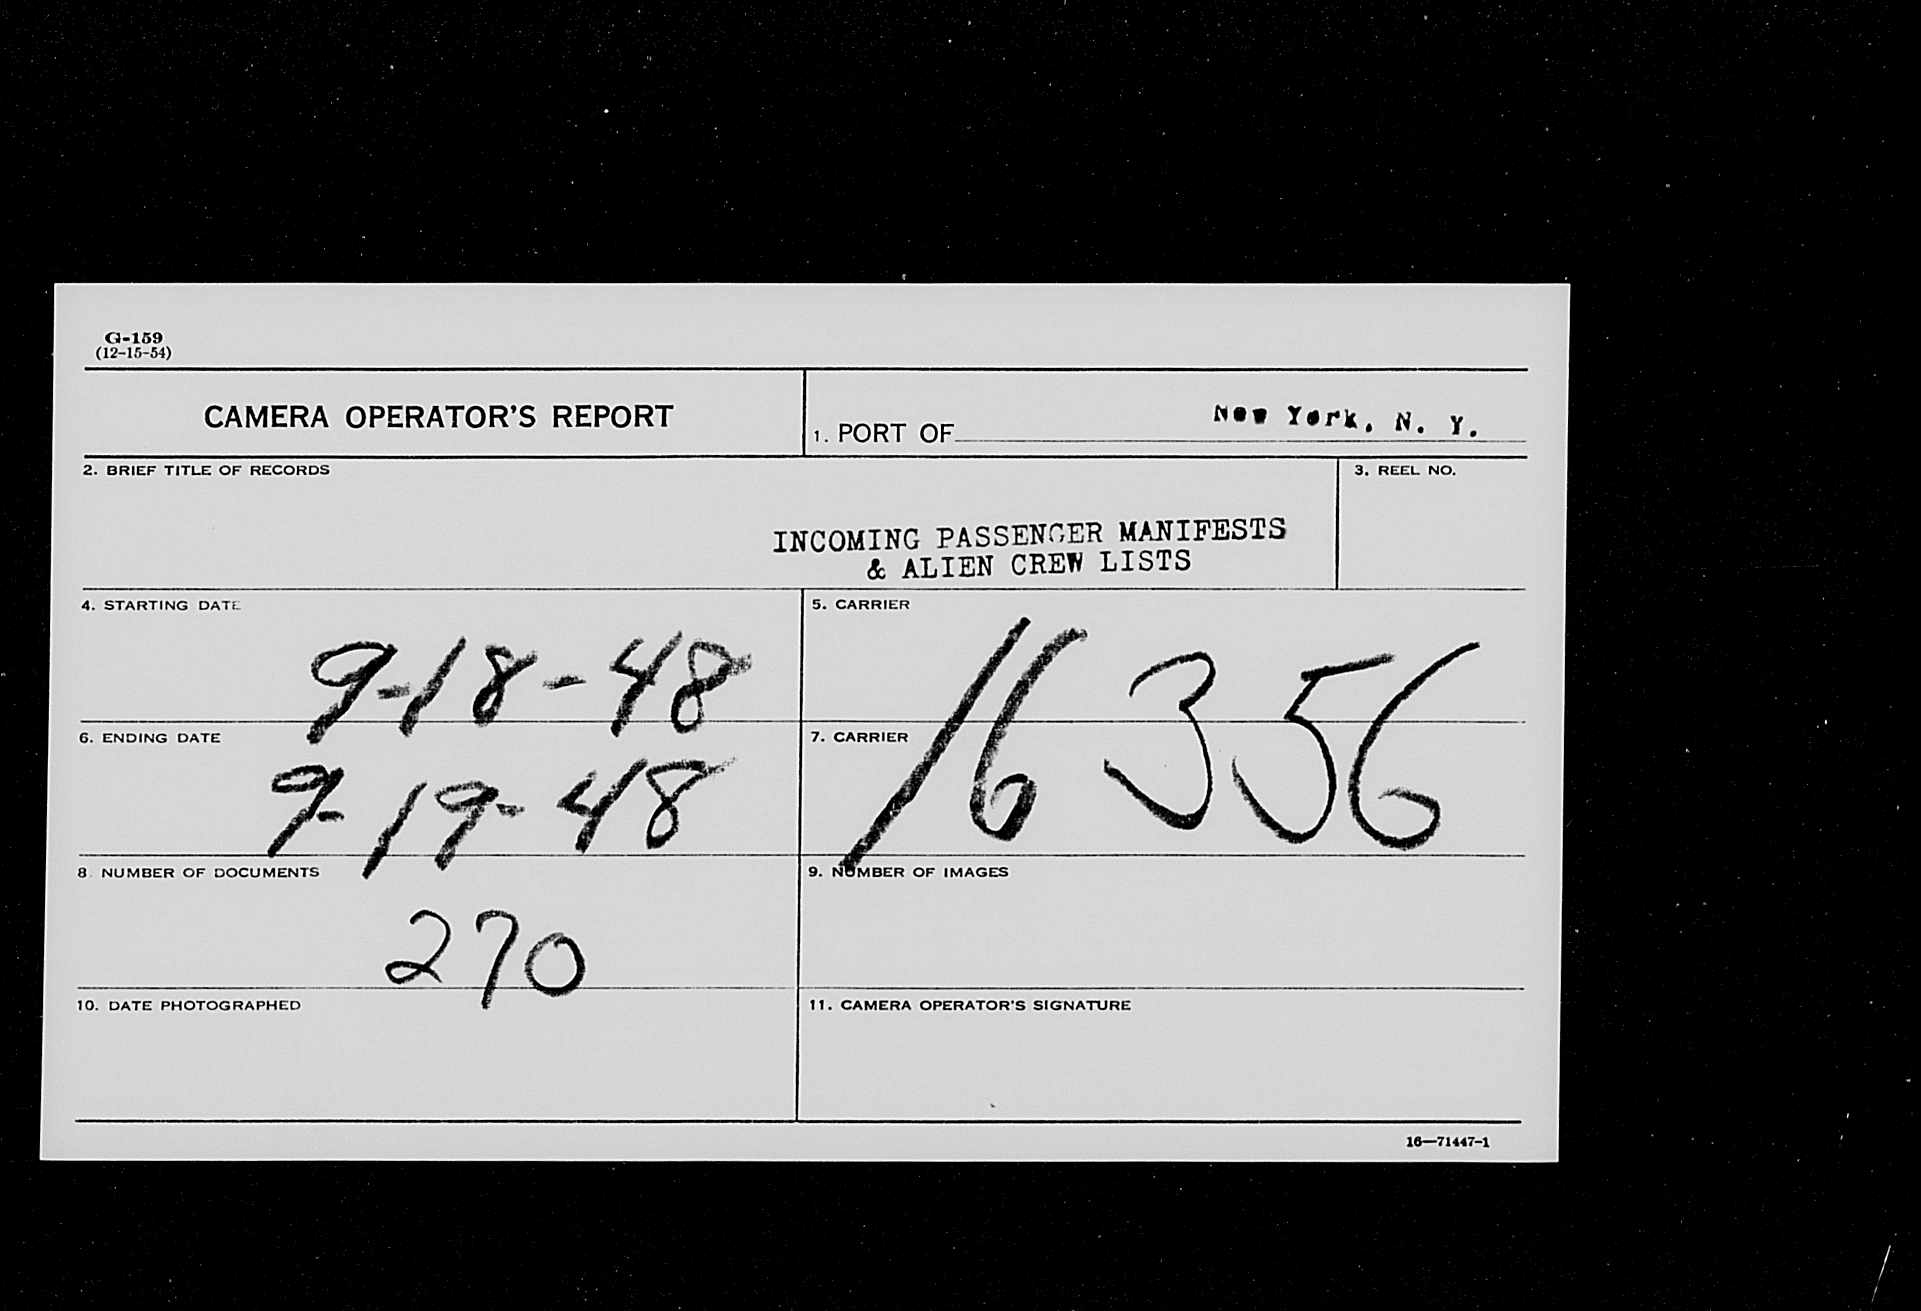 G-159
(12-15-54)
CAMERA OPERATOR'S REPORT
1. PORT OF New York, N. Y.
2. BRIEF TITLE OF RECORDS
INCOMING PASSENGER MANIFESTS
& ALIEN CREW LISTS
3. REEL NO.
4. STARTING DATE
9-18-48
5. CARRIER
16356
6. ENDING DATE
9-19-48
7. CARRIER
8. NUMBER OF DOCUMENTS
270
9. NUMBER OF IMAGES
10. DATE PHOTOGRAPHED
11. CAMERA OPERATOR'S SIGNATURE
16—71447-1